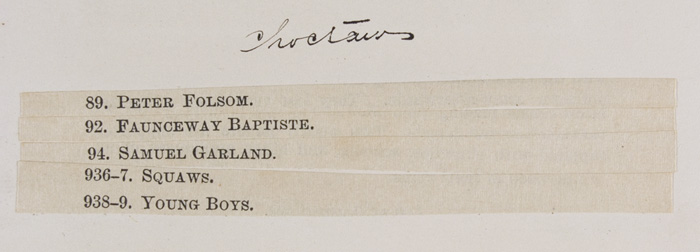 Choctaws
89. Peter Folsom.
92. Faunceway Baptiste.
94. Samuel Garland.
936-7. Squaws.
938-9. Young Boys.